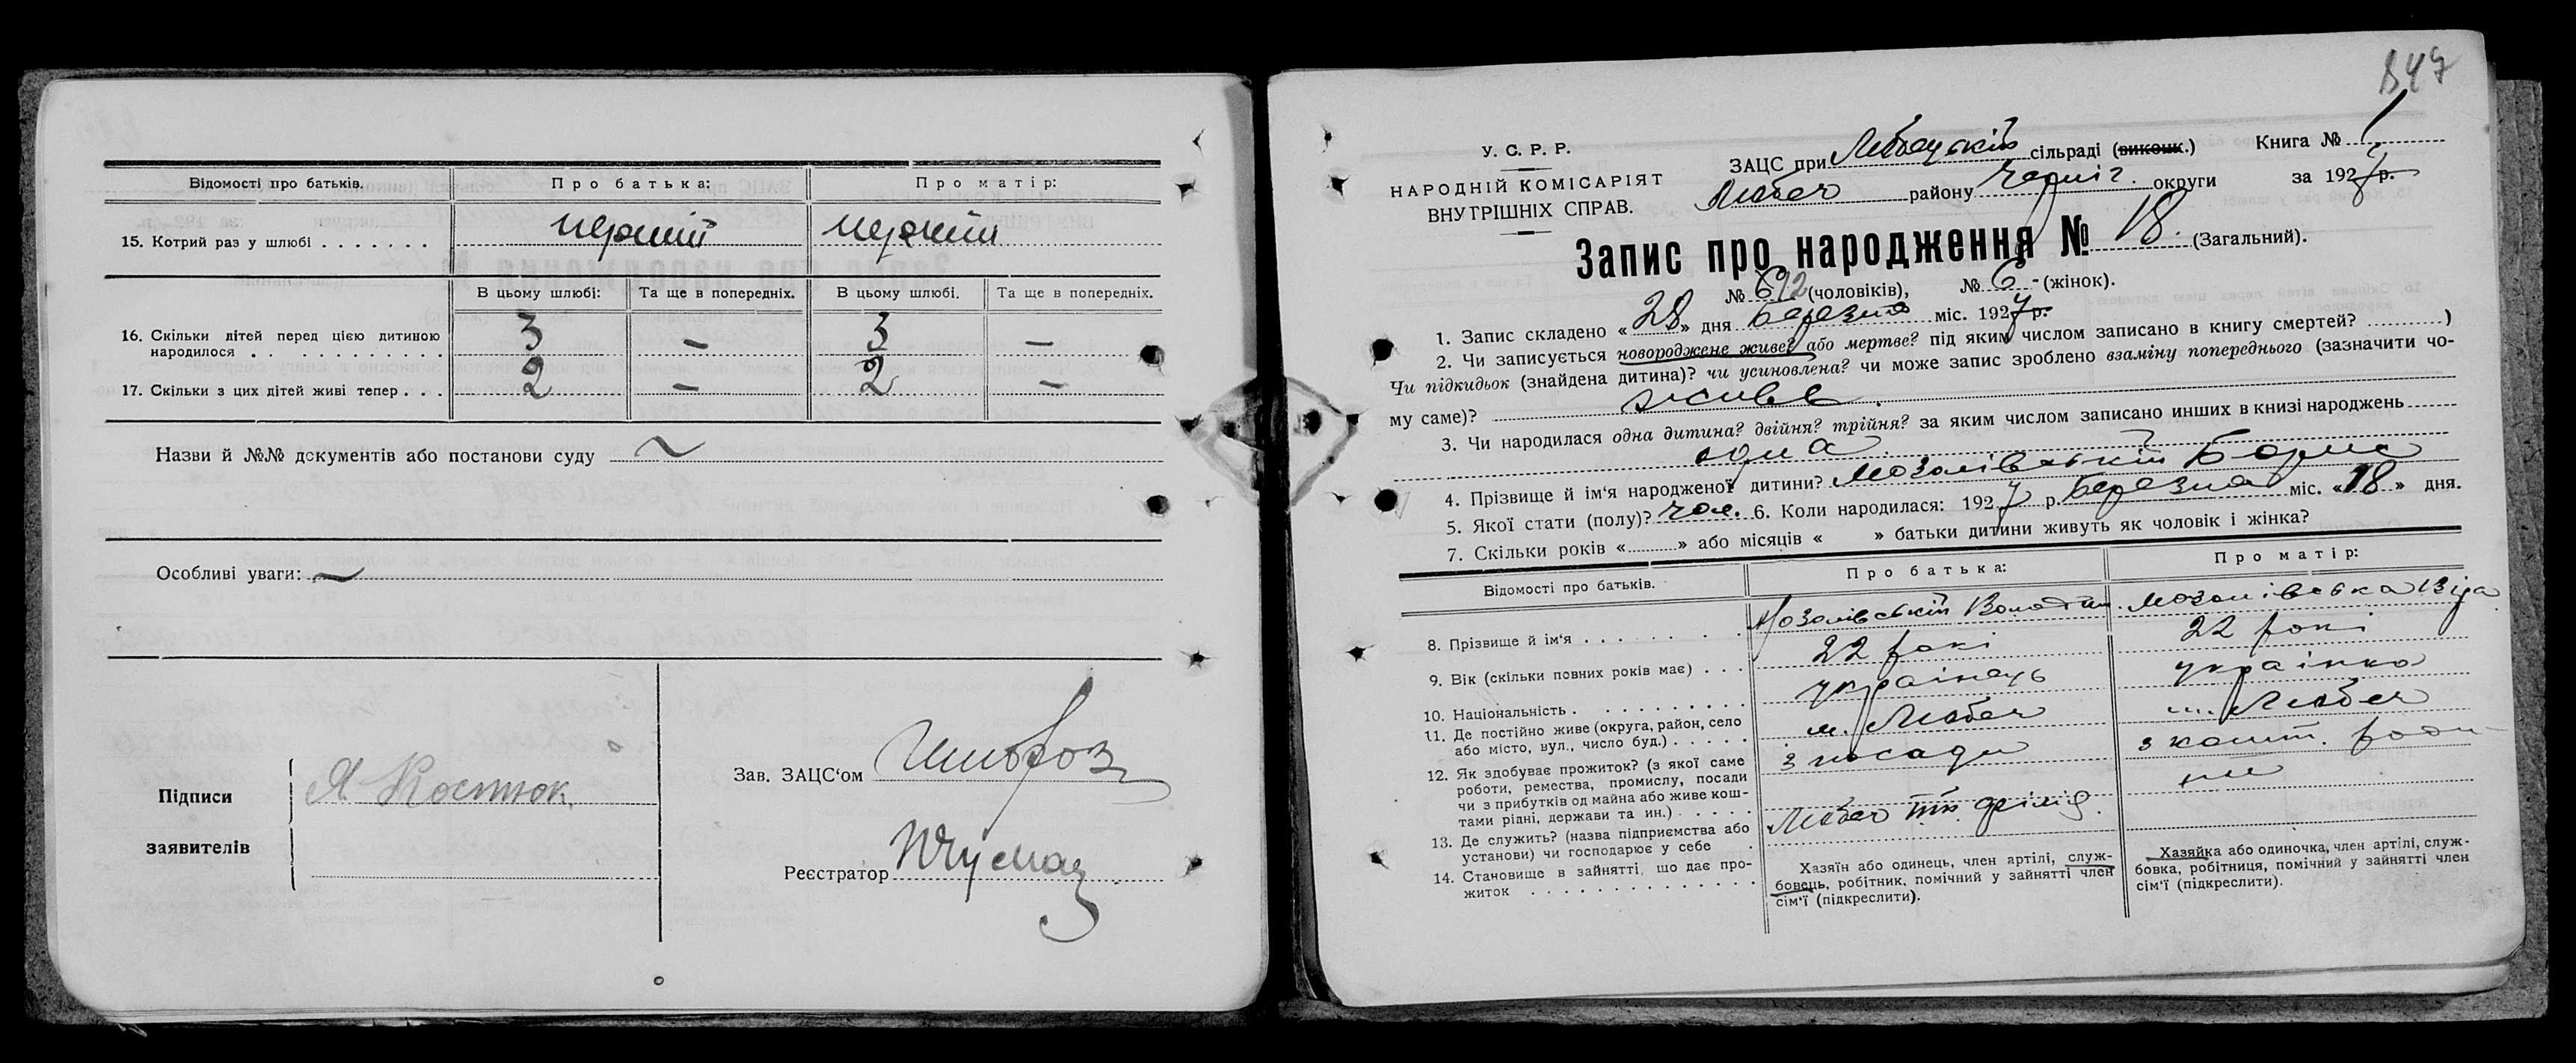 Відомості про батьків. Про батька: Про матір:
15. Котрий раз у шлюбі . . . . . . . перший перший
В цьому шлюбі: Та ще в попередніх. В цьому шлюбі. Та ще в попередніх.
16. Скільки дітей перед цією дитиною
народилося . . . . . . . . . . . 3 — 3 —
17. Скільки з цих дітей живі тепер . . . 2 — 2 —
Назви й №№ документів або постанови суду ~
Особливі уваги: ~
Підписи
заявителів
Я Костюк
Зав. ЗАЦС'ом
Реєстратор
847
У. С. Р. Р.
НАРОДНІЙ КОМІСАРІЯТ
ВНУТРІШНІХ СПРАВ.
ЗАЦС при Любецькій сільраді (виконк.) Книга № 1
Любеч району Черніг. округи за 1927 р.
Запис про народження № 18. (Загальний).
№ 12 (чоловіків), № 6 - (жінок).
1. Запис складено « 28 » дня березня міс. 1927 р.
2. Чи записується новороджене живе? або мертве? під яким числом записано в книгу смертей? )
Чи підкидьок (знайдена дитина)? чи усиновлена? чи може запис зроблено взаміну попереднього (зазначити чо-
му саме)? живе.
3. Чи народилася одна дитина? двійня? трійня? за яким числом записано инших в книзі народжень
одна.
4. Прізвище й ім'я народженої дитини? Мозолівський Борис
5. Якої стати (полу)? чол. 6. Коли народилася: 1927 р. березня міс. «18» дня.
7. Скільки років « » або місяців « » батьки дитини живуть як чоловік і жінка?
Відомості про батьків. Про батька: Про матір:
8. Прізвище й ім'я . . . . . . . . Мозолівський Володим. Мозолівська
9. Вік (скільки повних років має) . . . 22 рокі 22 рокі
10. Національність . . . . . . . . . українець українка
11. Де постійно живе (округа, район, село
або місто, вул., число буд.) . . . . . м. Любеч м. Любеч
12. Як здобуває прожиток? (з якої саме
роботи, ремества, промислу, посади
чи з прибутків од майна або живе кош-
тами рідні, держави та ин.) . . . . . з посади з кошт. роди-
ни
13. Де служить? (назва підприємства або
установи) чи господарює у себе . Любеч
14. Становище в зайнятті, що дає про-
житок . . . . . . . . . . . . . .
Хазяїн або одинець, член артілі, служ-
бовець, робітник, помічний у зайнятті член
сім'ї (підкреслити).
Хазяйка або одиночка, член артілі, служ-
бовка, робітниця, помічний у зайнятті член
сім'ї (підкреслити).